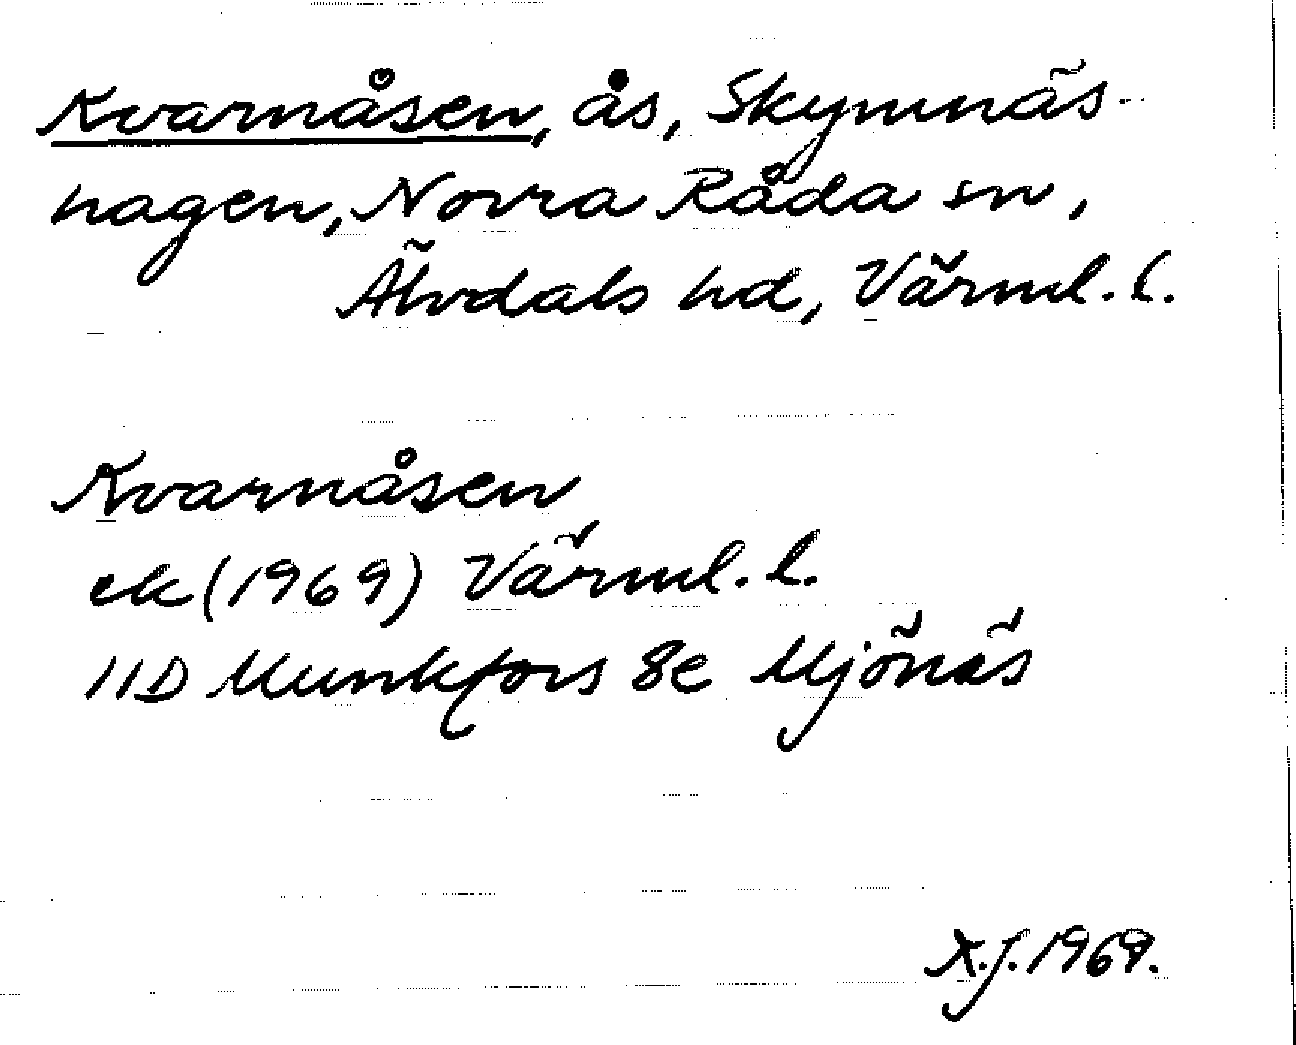 Kvarnåsen, ås, Skymnäs-
hagen, Norra Råda sn,
Älvdals hd, Värml. l.
Kvarnåsen
ek (1969) Värml. l.
11D Munkfors 8e Mjönäs
X.J. 1969.